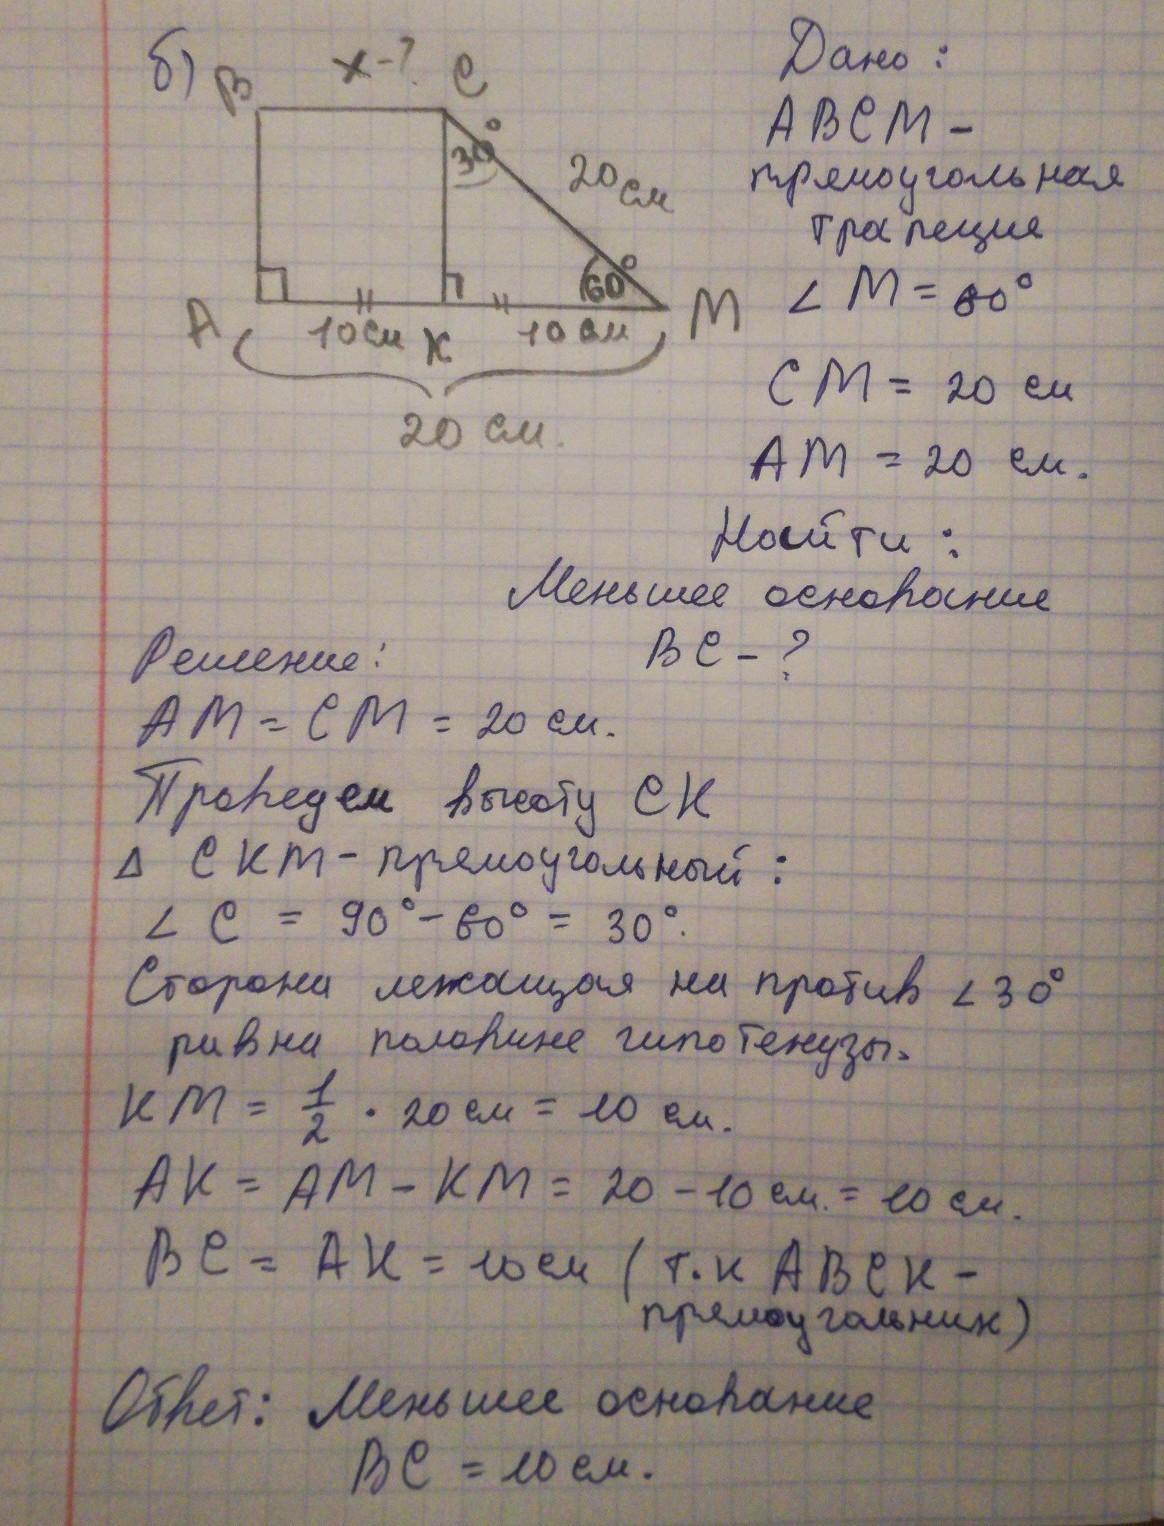 б)
B
x-?
C
30°
20 см
60°
A
10 см
K
10 см
M
20 см.
Дано:
ABCM -
прямоугольная
трапеция
∠ M = 60°
CM = 20 см
AM = 20 см.
Найти:
Меньшее основание
BC - ?
Решение:
AM = CM = 20 см.
Проведем высоту CK
Δ CKM - прямоугольный:
∠ C = 90° - 60° = 30°.
Сторона лежащая на против ∠30°
равна половине гипотенузы.
KM = 1/2 · 20 см = 10 см.
AK = AM - KM = 20 - 10 см. = 10 см.
BC = AK = 10 см (т.к ABCK -
прямоугольник)
Ответ: Меньшее основание
BC = 10 см.